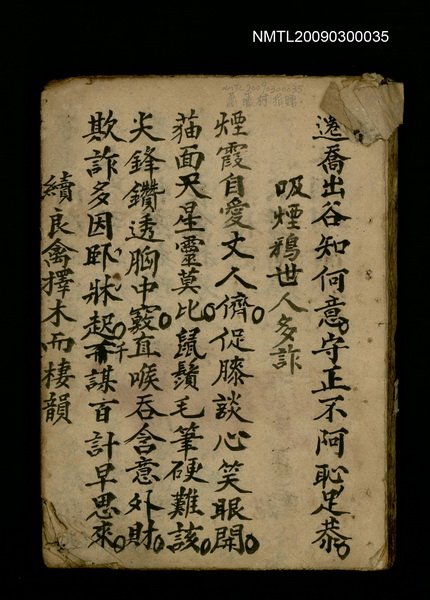 NMTL20090300035
NMTL20090300035
遷喬出谷知何意守正不阿恥足恭
吸煙鴉世人多詐
煙霞自愛丈人儕促膝談心笑眼開
猫面天星靈莫比鼠鬚毛筆硬難該
尖鋒鑽透胸中竅直喉吞含意外財
欺詐多因臥牀起千謀百計早思來
續良禽擇木而棲韻